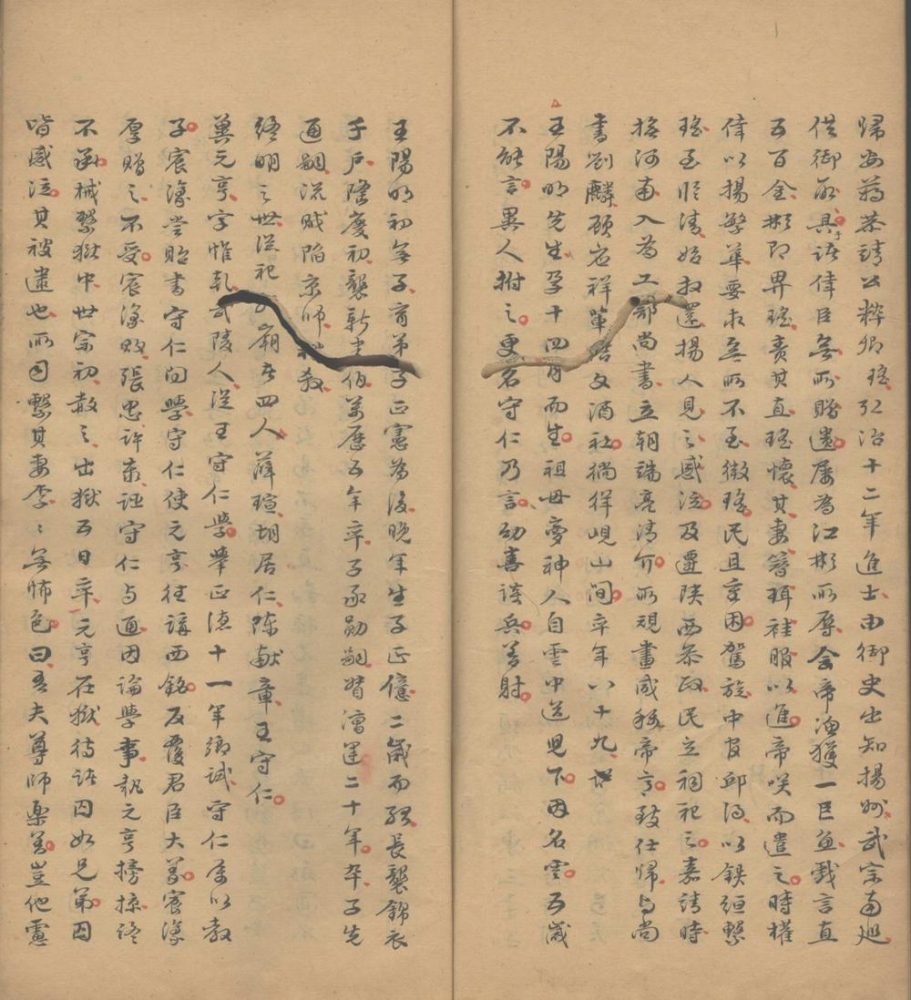 歸安蔣恭靖公粹卿瑤弘治十二年進士由御史出知揚州武宗南廵
供御取具諸偉臣無所贈遺屢為江彬所辱會帝漁獲一巨魚戲言直
五百金彬即畀瑤責其直瑤懷其妻簪珥袿服以進帝笑而遣之時權
倖以揚繁華要求無所不至微瑤民且重困駕旋中官邱得以鐵絚繫
瑤至臨清始放還揚人見之感泣及遷陝西參政民立祠祀之嘉靖時
撫河南入為工部尚書立朝端亮清介所規畫咸稱帝旨致仕歸與尚
書劉麟顧岩祥輩結文酒社徜徉峴山間卒年八十九
王陽明先生孕十四月而生祖母夢神人自雲中送兒下因名雲五歲
不能言異人拊之更名守仁乃言幼喜談兵善射
王陽明初無子育弟子正憲為後晚年生子正億二歲而孤長襲錦衣
千戶隆慶初襲新建伯萬歷五年卒子承勛嗣督漕運二十年卒子先
通嗣流賊陷京師被殺
終明之世從祀廟者四人薛瑄胡居仁陳獻章王守仁
冀元亨字惟乾武陵人從王守仁學舉正德十一年鄉試守仁屬以教
子宸濠嘗貽書守仁問學守仁使元亨往講西銘反覆君臣大義宸濠
厚贈之不受宸濠敗張忠許泰誣守仁與通因論學事執元亨搒掠終
不承械繫獄中世宗初赦之出獄五日卒元亨在獄待諸囚如兄弟囚
皆感泣其被逮也所司繫其妻李李無怖色曰吾夫尊師樂善豈他慮